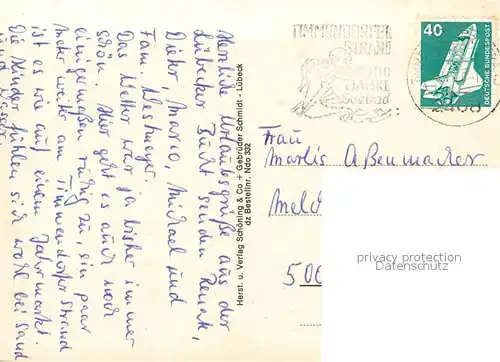 Herzliche Urlaubsgrüße aus der
Lübecker Bucht senden Renate,
Dieter, Marco, Michael und
Fam.
Das Wetter war ja bisher immer
schön. Hier geht es auch noch
einigermaßen ruhig zu, ein paar
weiter am Timmendorfer Strand
ist es wie auf einem Jahrmarkt.
Die Kinder fühlen sich wohl bei Sand
und Wasser.
Herst. u. Verlag Schöning & Co + Gebrüder Schmidt · Lübeck
dz Bestellnr. Ndo 332
TIMMENDORFER
STRAND
100
JAHRE
Seebad
40
DEUTSCHE BUNDESPOST
Frau
Marlis Aßenmacher
500
privacy protection
Datenschutz